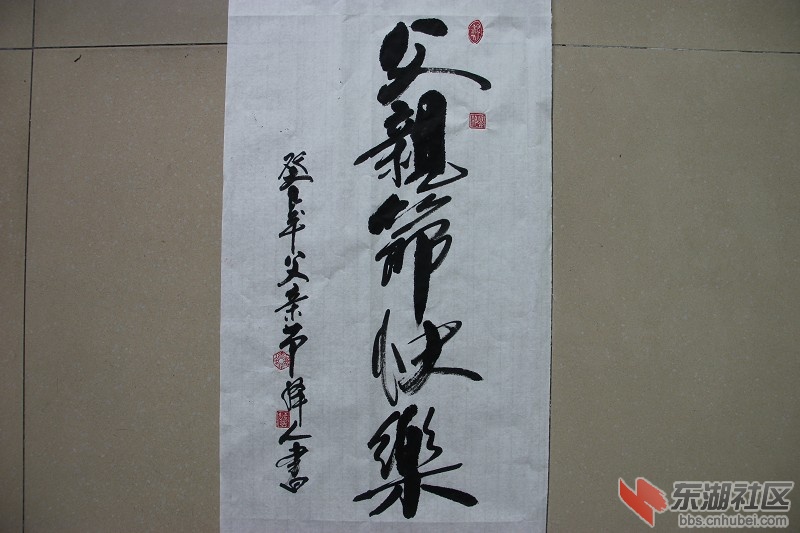 父親節快樂
癸巳年父亲节
人書
东湖社区
bbs.cnhubei.com